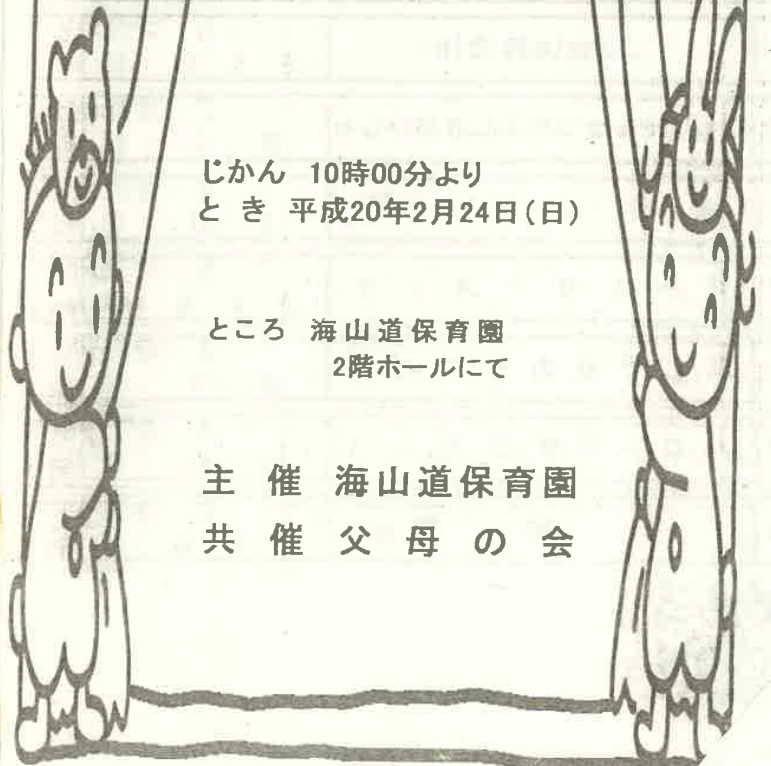 じかん 10時00分より
と き 平成20年2月24日(日)
ところ 海山道保育園
2階ホールにて
主 催 海山道保育園
共 催 父 母 の 会